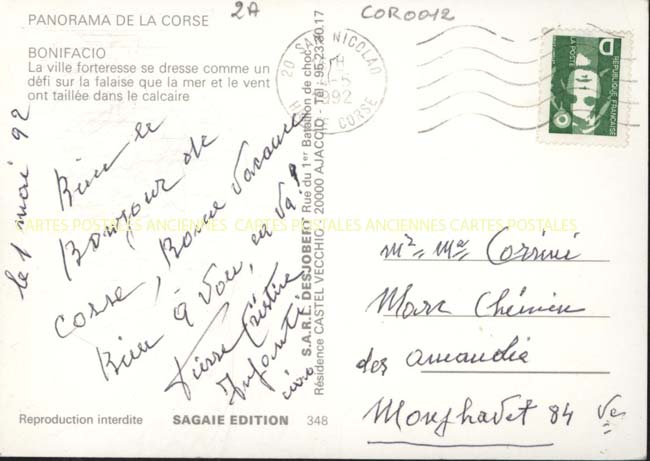 PANORAMA DE LA CORSE
2A
COR0012
BONIFACIO
La ville forteresse se dresse comme un
défi sur la falaise que la mer et le vent
ont taillée dans le calcaire
20 SAN NICOLAO
1992
HTE CORSE
D
LA POSTE
REPUBLIQUE FRANÇAISE
le 1 mai 92
Bien le
Bonjour de
corse, Bonne Vacance
Bien à Vou, en Va!
Pierre Cristine
S.A.R.L. DESJOBERT 1 Rue du 1er Bataillon de choc
Résidence CASTEL VECCHIO - 20000 AJACCIO - Tél. 95.23.30.17
CARTES POSTALES ANCIENNES CARTES POSTALES ANCIENNES CARTES POSTALES
mr = Ma Corsini
Marc Chémin
des amandie
84
Reproduction interdite SAGAIE EDITION 348